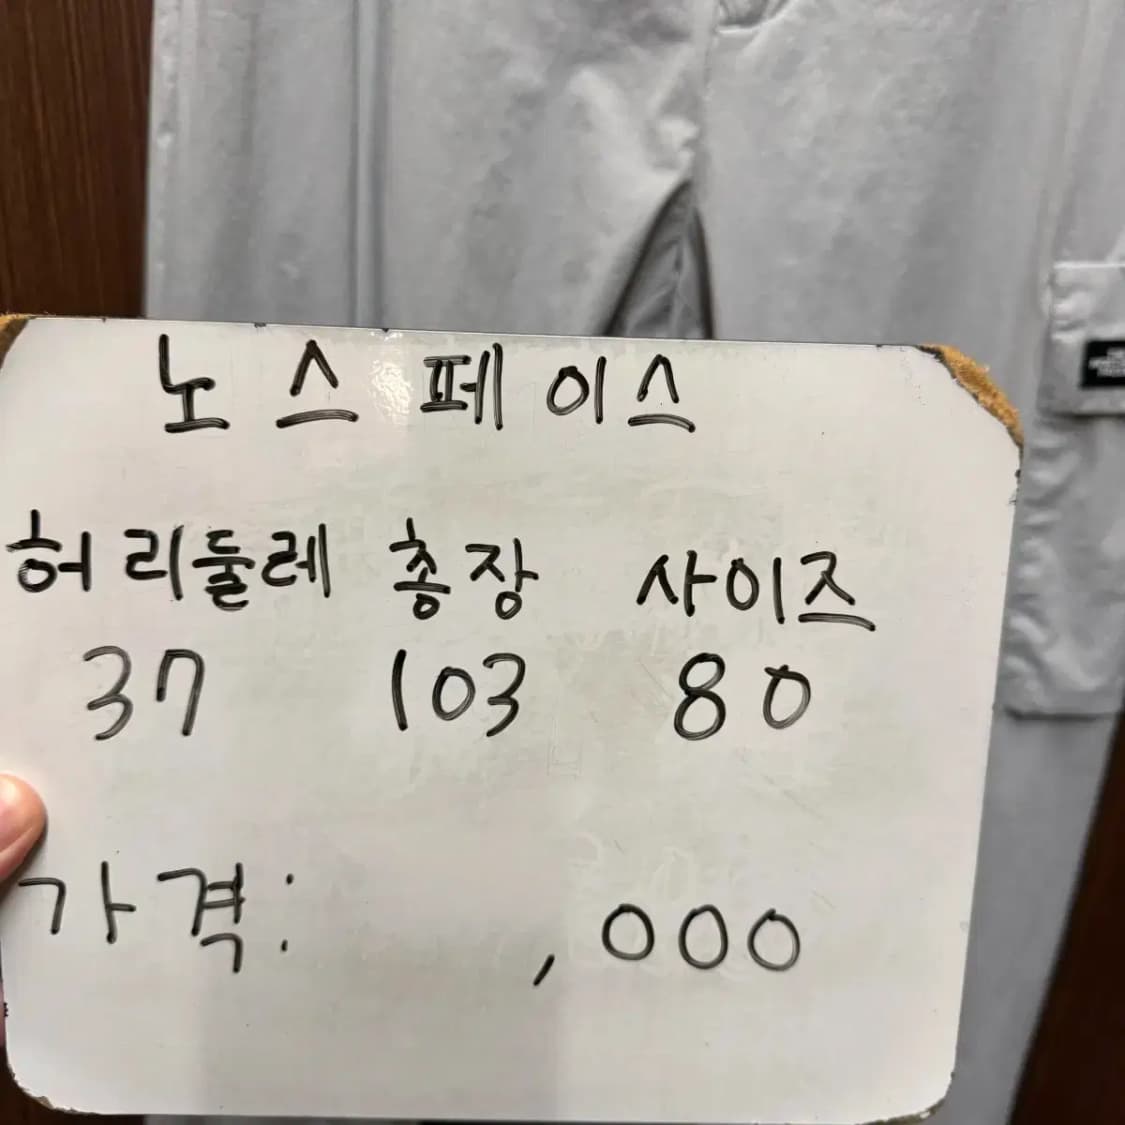 노스페이스
허리둘레 총장 사이즈
37 103 80
가격: ,000